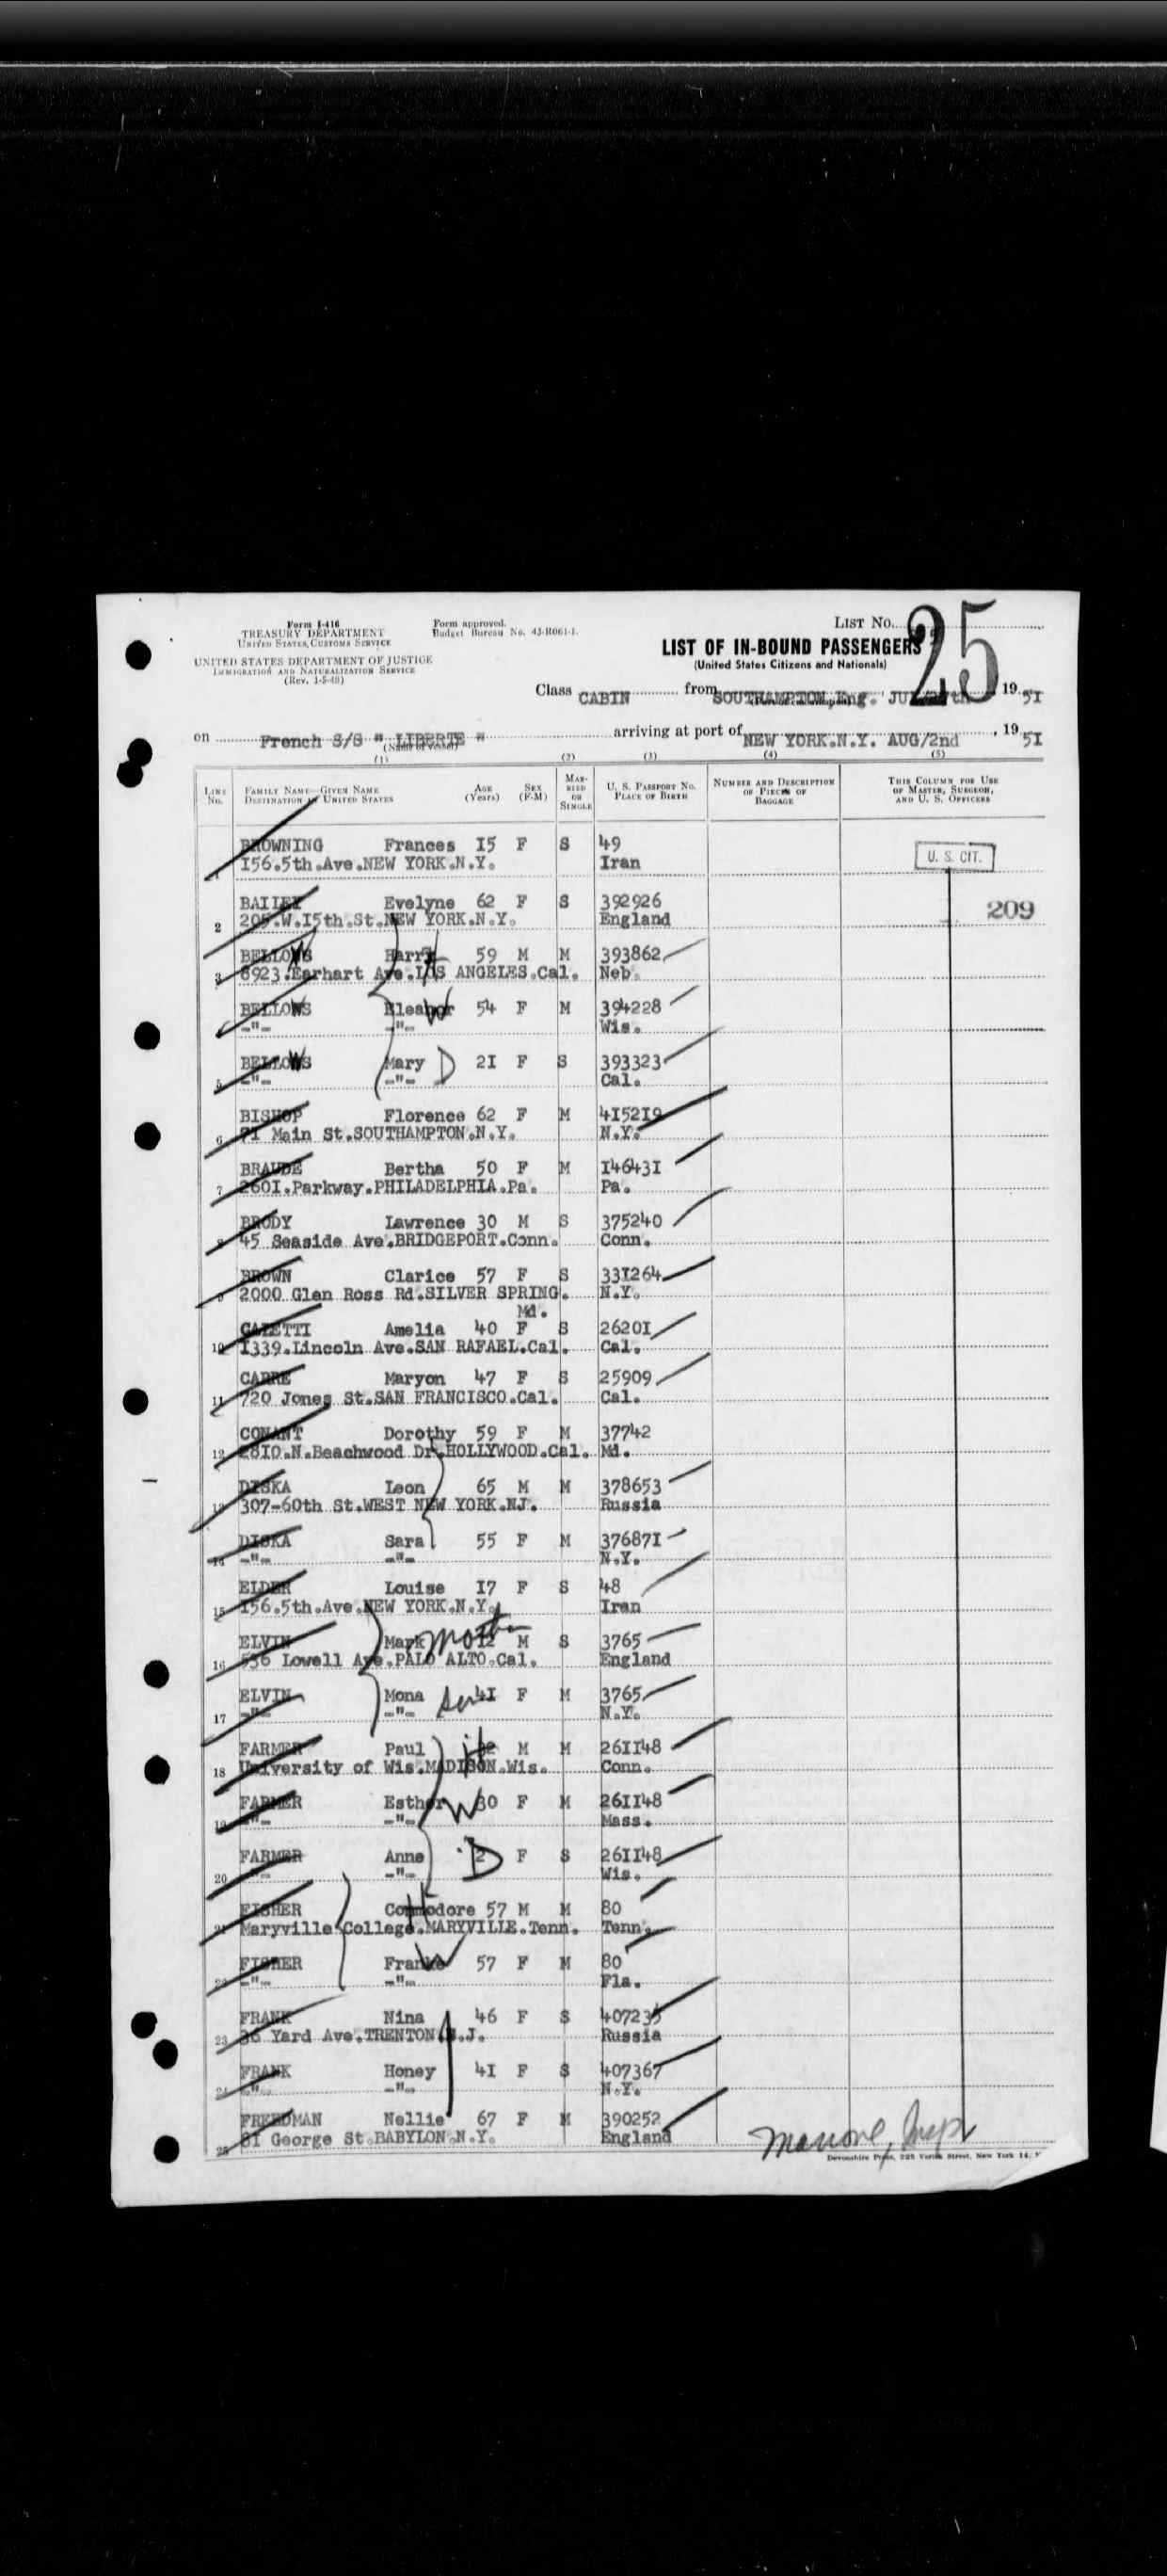 Form I-416
TREASURY DEPARTMENT
UNITED STATES CUSTOMS SERVICE
UNITED STATES DEPARTMENT OF JUSTICE
IMMIGRATION AND NATURALIZATION SERVICE
(Rev. 1-5-48)
Form approved.
Budget Bureau No. 43-R061-1.
LIST No. 25
LIST OF IN-BOUND PASSENGERS
(United States Citizens and Nationals)
Class CABIN from SOUTHAMPTON,Eng. 19 51
on French S/S " LIBERTE " arriving at port of NEW YORK.N.Y. AUG/2nd , 19 51
(Name of vessel)
(1) (2) (3) (4) (5)
LINE No. FAMILY NAME—GIVEN NAME DESTINATION IN UNITED STATES AGE (Years) SEX (F-M) MARRIED OR SINGLE U. S. PASSPORT No. PLACE OF BIRTH NUMBER AND DESCRIPTION OF PIECES OF BAGGAGE THIS COLUMN FOR USE OF MASTER, SURGEON, AND U. S. OFFICERS
BROWNING Frances 15 F S 49
1 156.5th.Ave.NEW YORK.N.Y. Iran
U. S. CIT.
BAILEY Evelyne 62 F S 392926
2 205.W.15th.St.NEW YORK.N.Y. England
209
BELLOWS Harry H 59 M M 393862
3 8923.Earhart Ave.LOS ANGELES.Cal. Neb.
BELLOWS Eleanor W 54 F M 394228
4 -"- -"- Wis.
BELLOWS Mary D 21 F S 393323
5 -"- -"- Cal.
BISHOP Florence 62 F M 415219
6 71 Main St.SOUTHAMPTON.N.Y. N.Y.
BRAUDE Bertha 50 F M 146431
7 2601.Parkway.PHILADELPHIA.Pa. Pa.
BRODY Lawrence 30 M S 375240
8 45 Seaside Ave.BRIDGEPORT.Conn. Conn.
BROWN Clarice 57 F S 331264
9 2000 Glen Ross Rd.SILVER SPRING. N.Y.
Md.
Amelia 40 F S 26201
10 1339.Lincoln Ave.SAN RAFAEL.Cal. Cal.
CARRE Maryon 47 F S 25909
11 720 Jones St.SAN FRANCISCO.Cal. Cal.
CONANT Dorothy 59 F M 37742
12 2810.N.Beachwood Dr.HOLLYWOOD.Cal. Md.
DISKA Leon 65 M M 378653
13 307-60th St.WEST NEW YORK.NJ. Russia
DISKA Sara 55 F M 376871
14 -"- -"- N.Y.
ELDER Louise 17 F S 48
15 156.5th.Ave.NEW YORK.N.Y. Iran
ELVIN Mark 12 M S 3765
16 536 Lowell Ave.PALO ALTO.Cal. England
ELVIN Mona 41 F M 3765
17 -"- -"- N.Y.
FARMER Paul H M M 261148
18 University of Wis.MADISON.Wis. Conn.
FARMER Esther W 30 F M 261148
19 -"- -"- Mass.
FARMER Anne 2 D F S 261148
20 -"- -"- Wis.
FISHER Commodore H 57 M M 80
21 Maryville College.MARYVILLE.Tenn. Tenn.
FISHER W 57 F M 80
22 -"- -"- Fla.
FRANK Nina 46 F S 407235
23 36 Yard Ave.TRENTON.N.J. Russia
FRANK Honey 41 F S 407367
24 -"- -"- N.Y.
FREEDMAN Nellie 67 F M 390252
25 81 George St.BABYLON.N.Y. England
Devonshire Press, 225 Varick Street, New York 14,